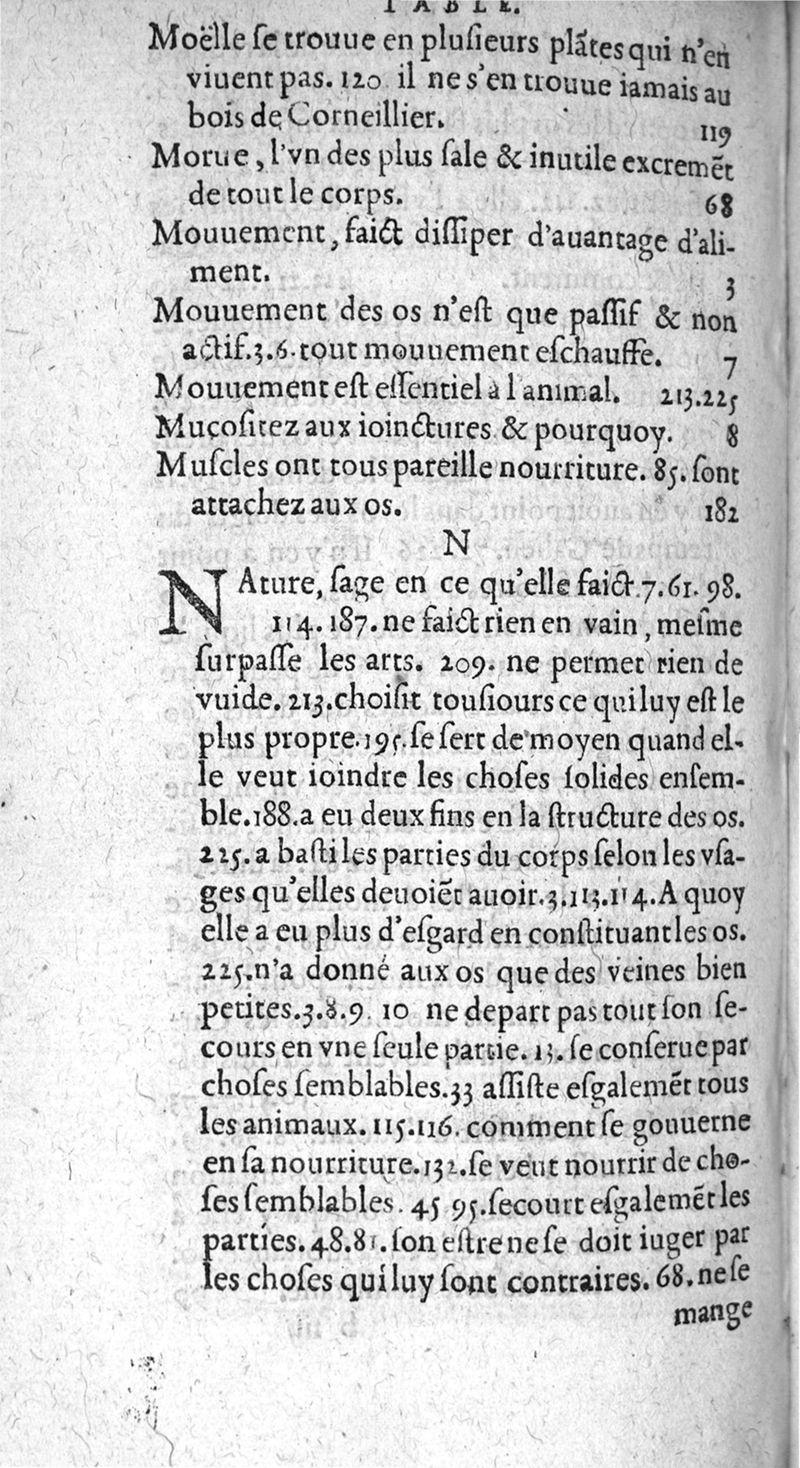 TABLE.
Moëlle ſe trouue en pluſieurs plãtes qui n'en
viuent pas. 120 il ne s'en trouue iamais au
bois de Corneillier. 119
Morue, l'vn des plus ſale & inutile excremẽt
de tout le corps. 68
Mouuement, faict diſſiper d'auantage d'ali-
ment. 3
Mouuement des os n'eſt que paſſif & non
actif. 3. 6. tout mouuement eſchauffe. 7
Mouuement eſt eſſentiel à l'animal. 213. 225
Mucoſitez aux ioinctures & pourquoy. 8
Muſcles ont tous pareille nourriture. 85. ſont
attachez aux os. 182
N
NAture, ſage en ce qu'elle faict. 7. 61. 98.
114. 187. ne faict rien en vain, meſme
ſurpaſſe les arts. 209. ne permet rien de
vuide. 213. choiſit touſiours ce qui luy eſt le
plus propre. 195. ſe ſert de moyen quand el-
le veut ioindre les choſes ſolides enſem-
ble. 188. a eu deux fins en la ſtructure des os.
225. a baſti les parties du corps ſelon les vſa-
ges qu'elles deuoiẽt auoir. 3. 113. 114. A quoy
elle a eu plus d'eſgard en conſtituant les os.
225. n'a donné aux os que des veines bien
petites. 3. 8. 9. 10 ne depart pas tout ſon ſe-
cours en vne ſeule partie. 13. ſe conſerue par
choſes ſemblables. 33 aſſiſte eſgalemẽt tous
les animaux. 115. 116. comment ſe gouuerne
en ſa nourriture. 132. ſe veut nourrir de cho-
ſes ſemblables. 45 95. ſecourt eſgalemẽt les
parties. 48. 81. ſon eſtre ne ſe doit iuger par
les choſes qui luy ſont contraires. 68. ne ſe
mange